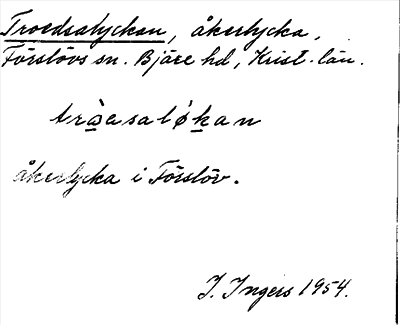 Troedsalyckan, åkerlycka,
Förslövs sn. Bjäre hd, Krist. län.
tròasaløkan
åkerlycka i Förslöv.
I. Ingers 1954.